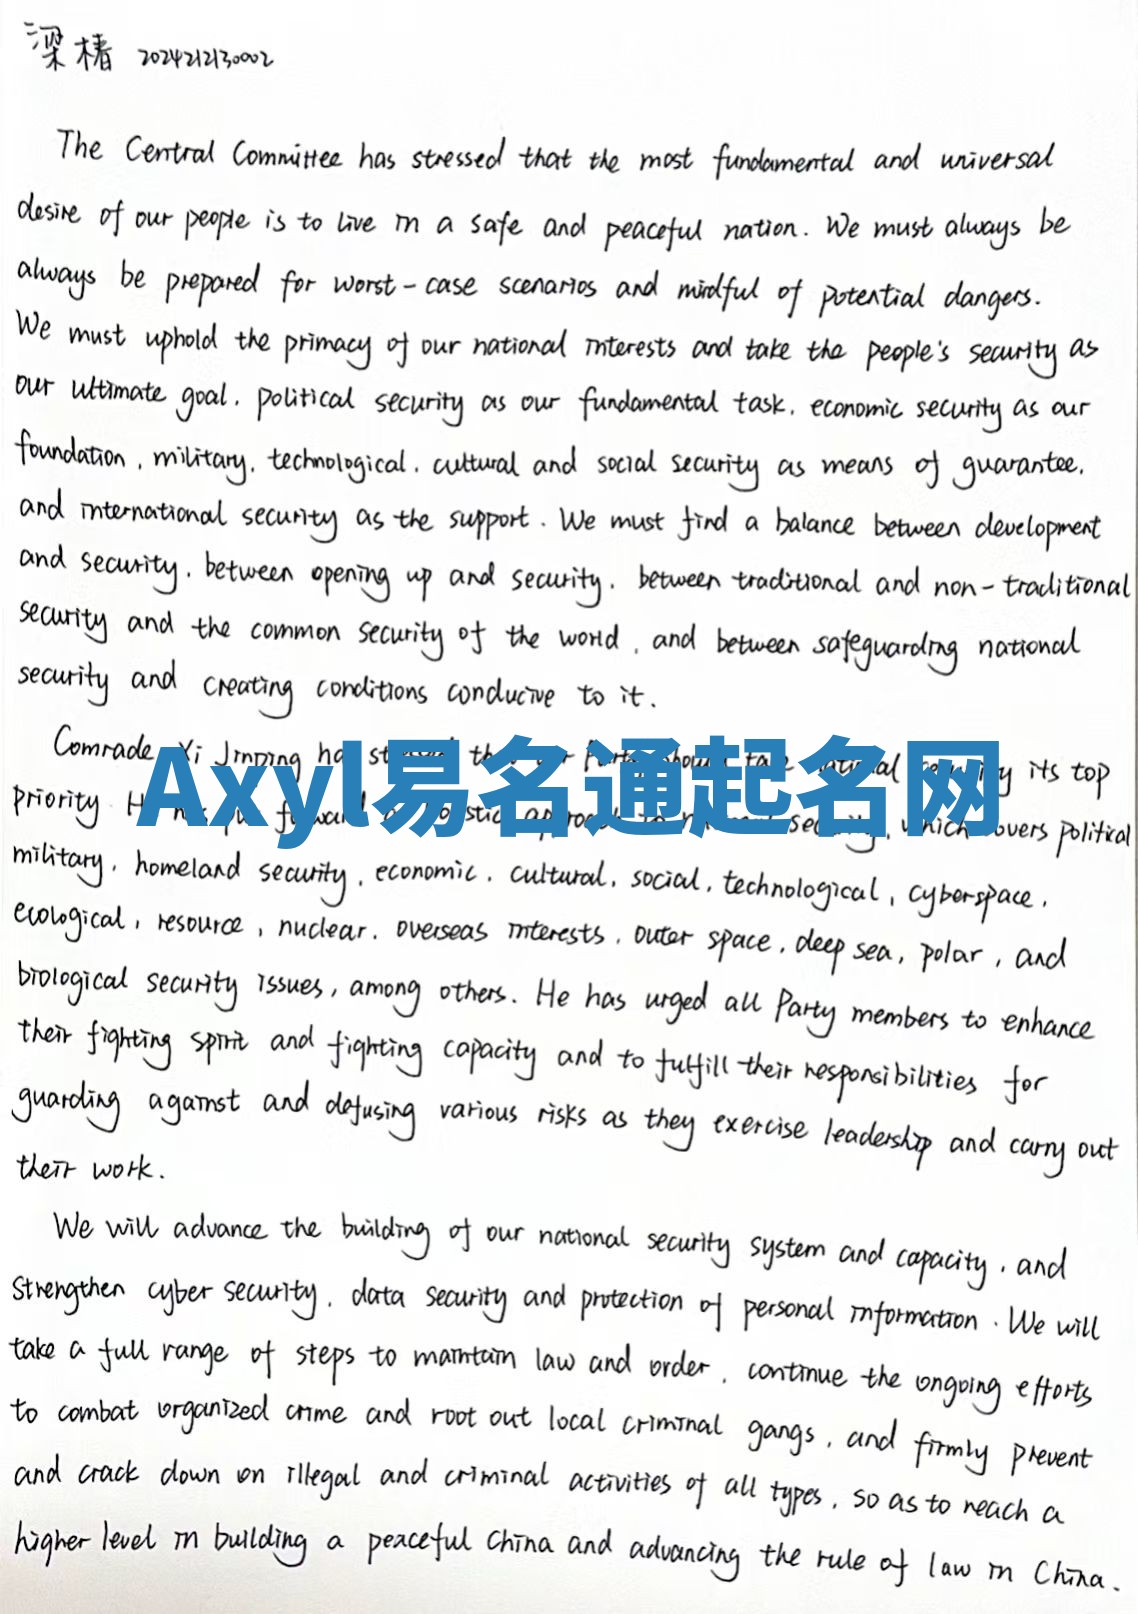 梁椿 2024212130002
The Central Committee has stressed that the most fundamental and universal
desire of our people is to live in a safe and peaceful nation. We must always be
always be prepared for worst-case scenarios and mindful of potential dangers.
We must uphold the primacy of our national interests and take the people's security as
our ultimate goal, political security as our fundamental task, economic security as our
foundation, military, technological, cultural and social security as means of guarantee,
and international security as the support. We must find a balance between development
and security, between opening up and security, between traditional and non-traditional
security and the common security of the world, and between safeguarding national
security and creating conditions conducive to it.
Comrade Xi Jinping has its top
Axyl易名通起名网
priority security, which covers political
military, homeland security, economic, cultural, social, technological, cyberspace,
ecological, resource, nuclear, overseas interests, outer space, deep sea, polar, and
biological security issues, among others. He has urged all Party members to enhance
their fighting spirit and fighting capacity and to fulfill their responsibilities for
guarding against and defusing various risks as they exercise leadership and carry out
their work.
We will advance the building of our national security system and capacity, and
strengthen cyber security, data security and protection of personal information. We will
take a full range of steps to maintain law and order, continue the ongoing efforts
to combat organized crime and root out local criminal gangs, and firmly prevent
and crack down on illegal and criminal activities of all types, so as to reach a
higher level in building a peaceful China and advancing the rule of law in China.